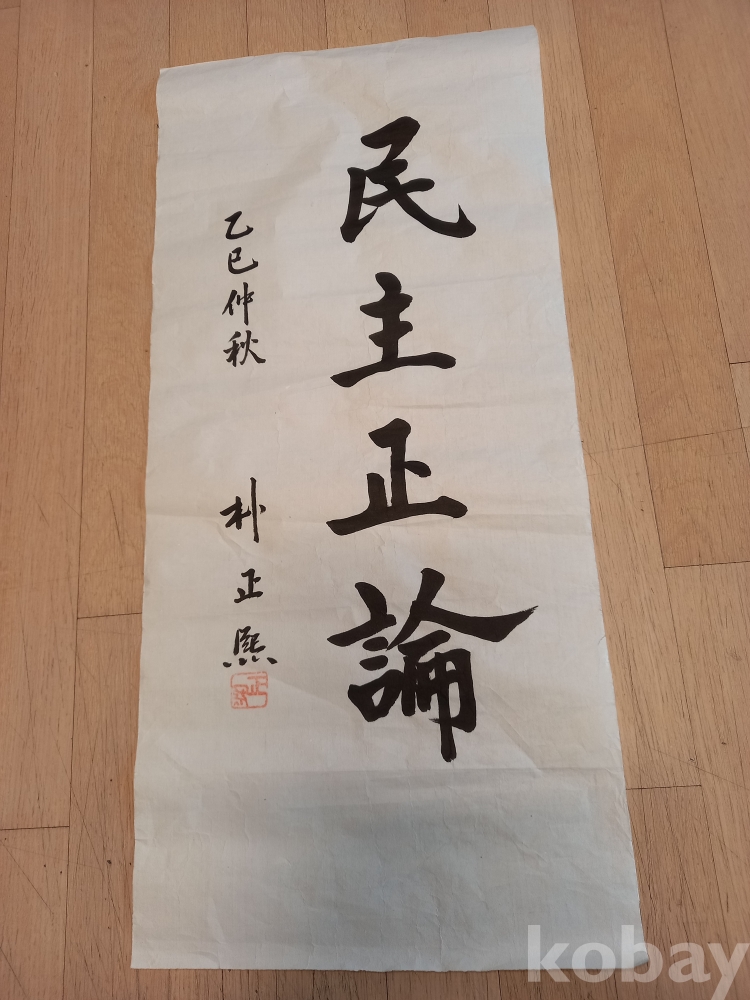 民主正論
乙巳仲秋
朴正熙
正熙
kobay